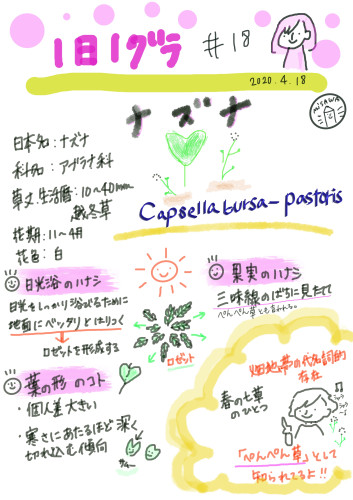 1日1グラ #18
2020.4.18
MISAWA
ナズナ
日本名:ナズナ
科名:アブラナ科
草丈.生活暦:10~40mm
越冬草
花期:11~4月
花色:白
Capsella bursa-pastoris
日光浴のハナシ
日光をしっかり浴びるために
地面にベッタリとはりつく
→ロゼットを形成する
ロゼット
果実のハナシ
三味線のばちに見たて
ぺんぺん草とも言われる。
葉の形のコト
・個人差大きい
・寒さにあたるほど深く
切れ込む傾向
畑地帯の代名詞的
存在
春の七草
のひとつ
「ぺんぺん草」として
知られてるよ!!